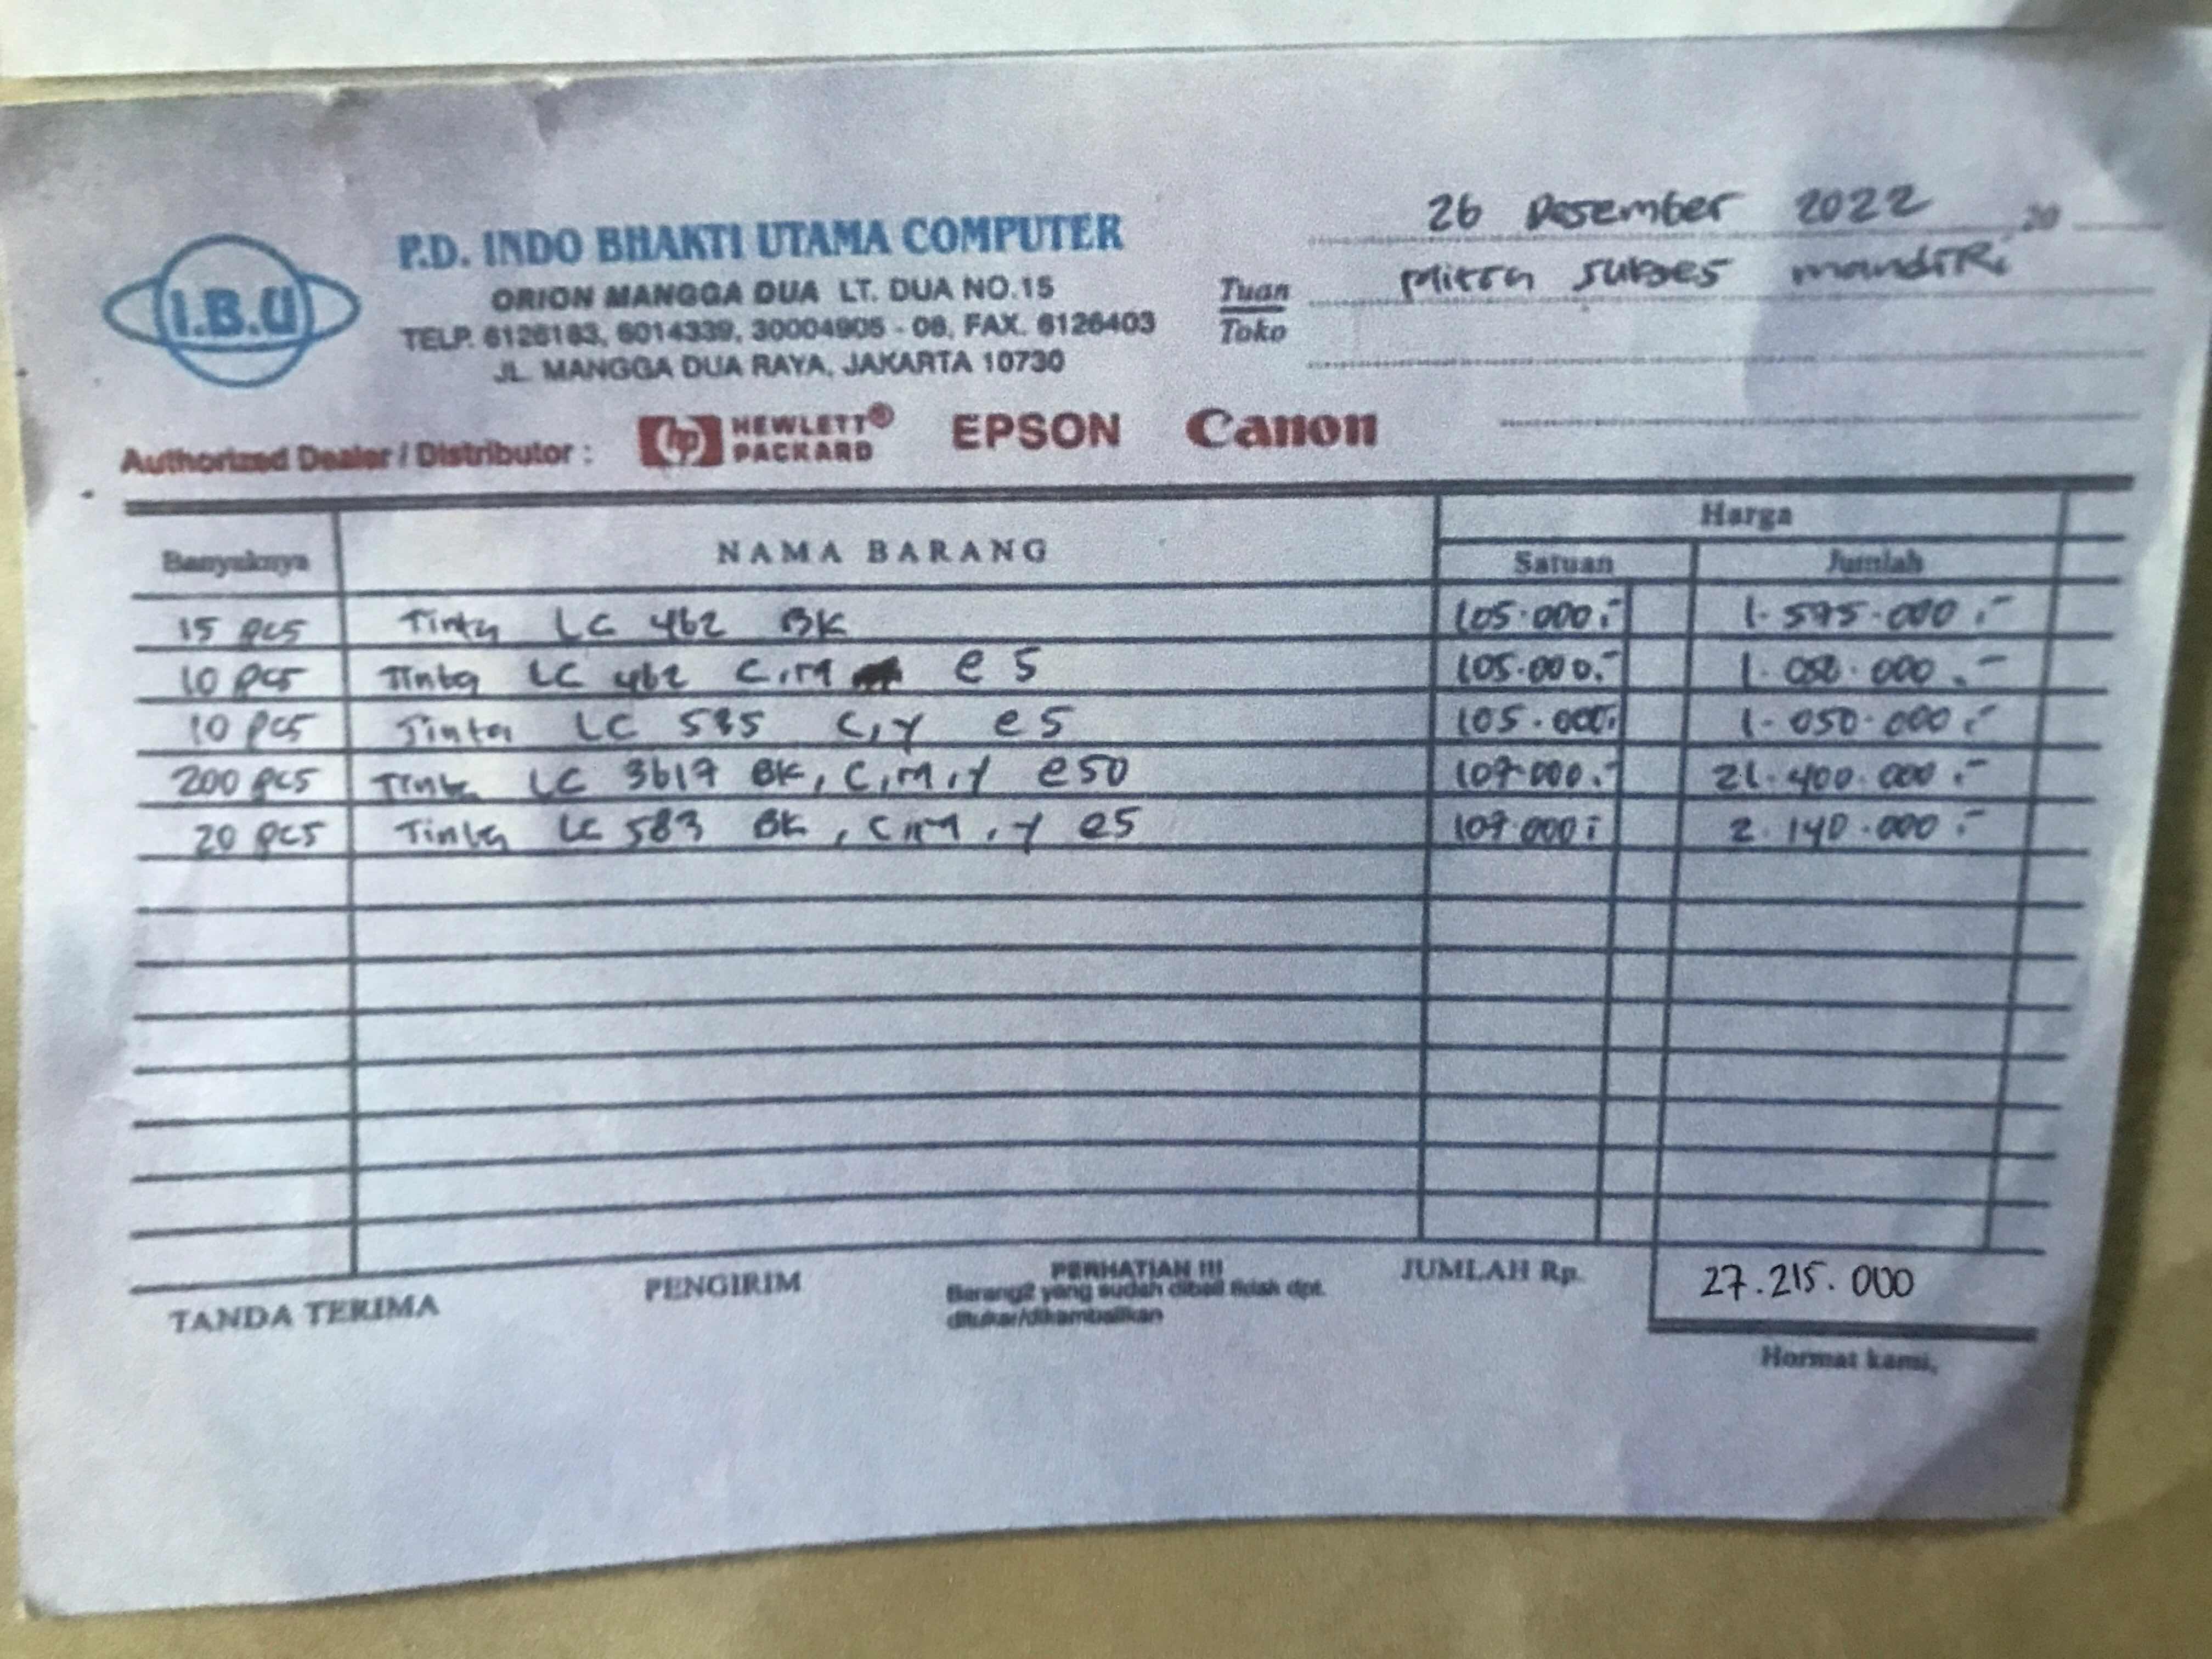 26 Desember 2022 20
P.D. INDO BHAKTI UTAMA COMPUTER
I.B.U
ORION MANGGA DUA LT. DUA NO.15
Tuan Mitra Sukses mandiri
Toko
TELP. 6126183, 6014339, 30004905 - 06, FAX. 6126403
JL. MANGGA DUA RAYA, JAKARTA 10730
Authorized Dealer / Distributor : hp HEWLETT® PACKARD EPSON Canon
Banyaknya NAMA BARANG Harga
Satuan Jumlah
15 pcs Tinta LC 462 BK 105.000.- 1.575.000.-
10 pcs Tinta LC 462 C,M e 5 105.000.- 1.050.000.-
10 pcs Tinta LC 535 C,Y e 5 105.000. 1.050.000.-
200 pcs Tinta LC 3617 BK, C,M,Y e50 107.000.- 21.400.000.-
20 pcs Tinta LC 583 BK, C,M,Y e5 107.000.- 2.140.000.-
TANDA TERIMA PENGIRIM PERHATIAN !!! JUMLAH Rp. 27.215.000
Barang2 yang sudah dibeli tidak dpt.
ditukar/dikembalikan
Hormat kami,